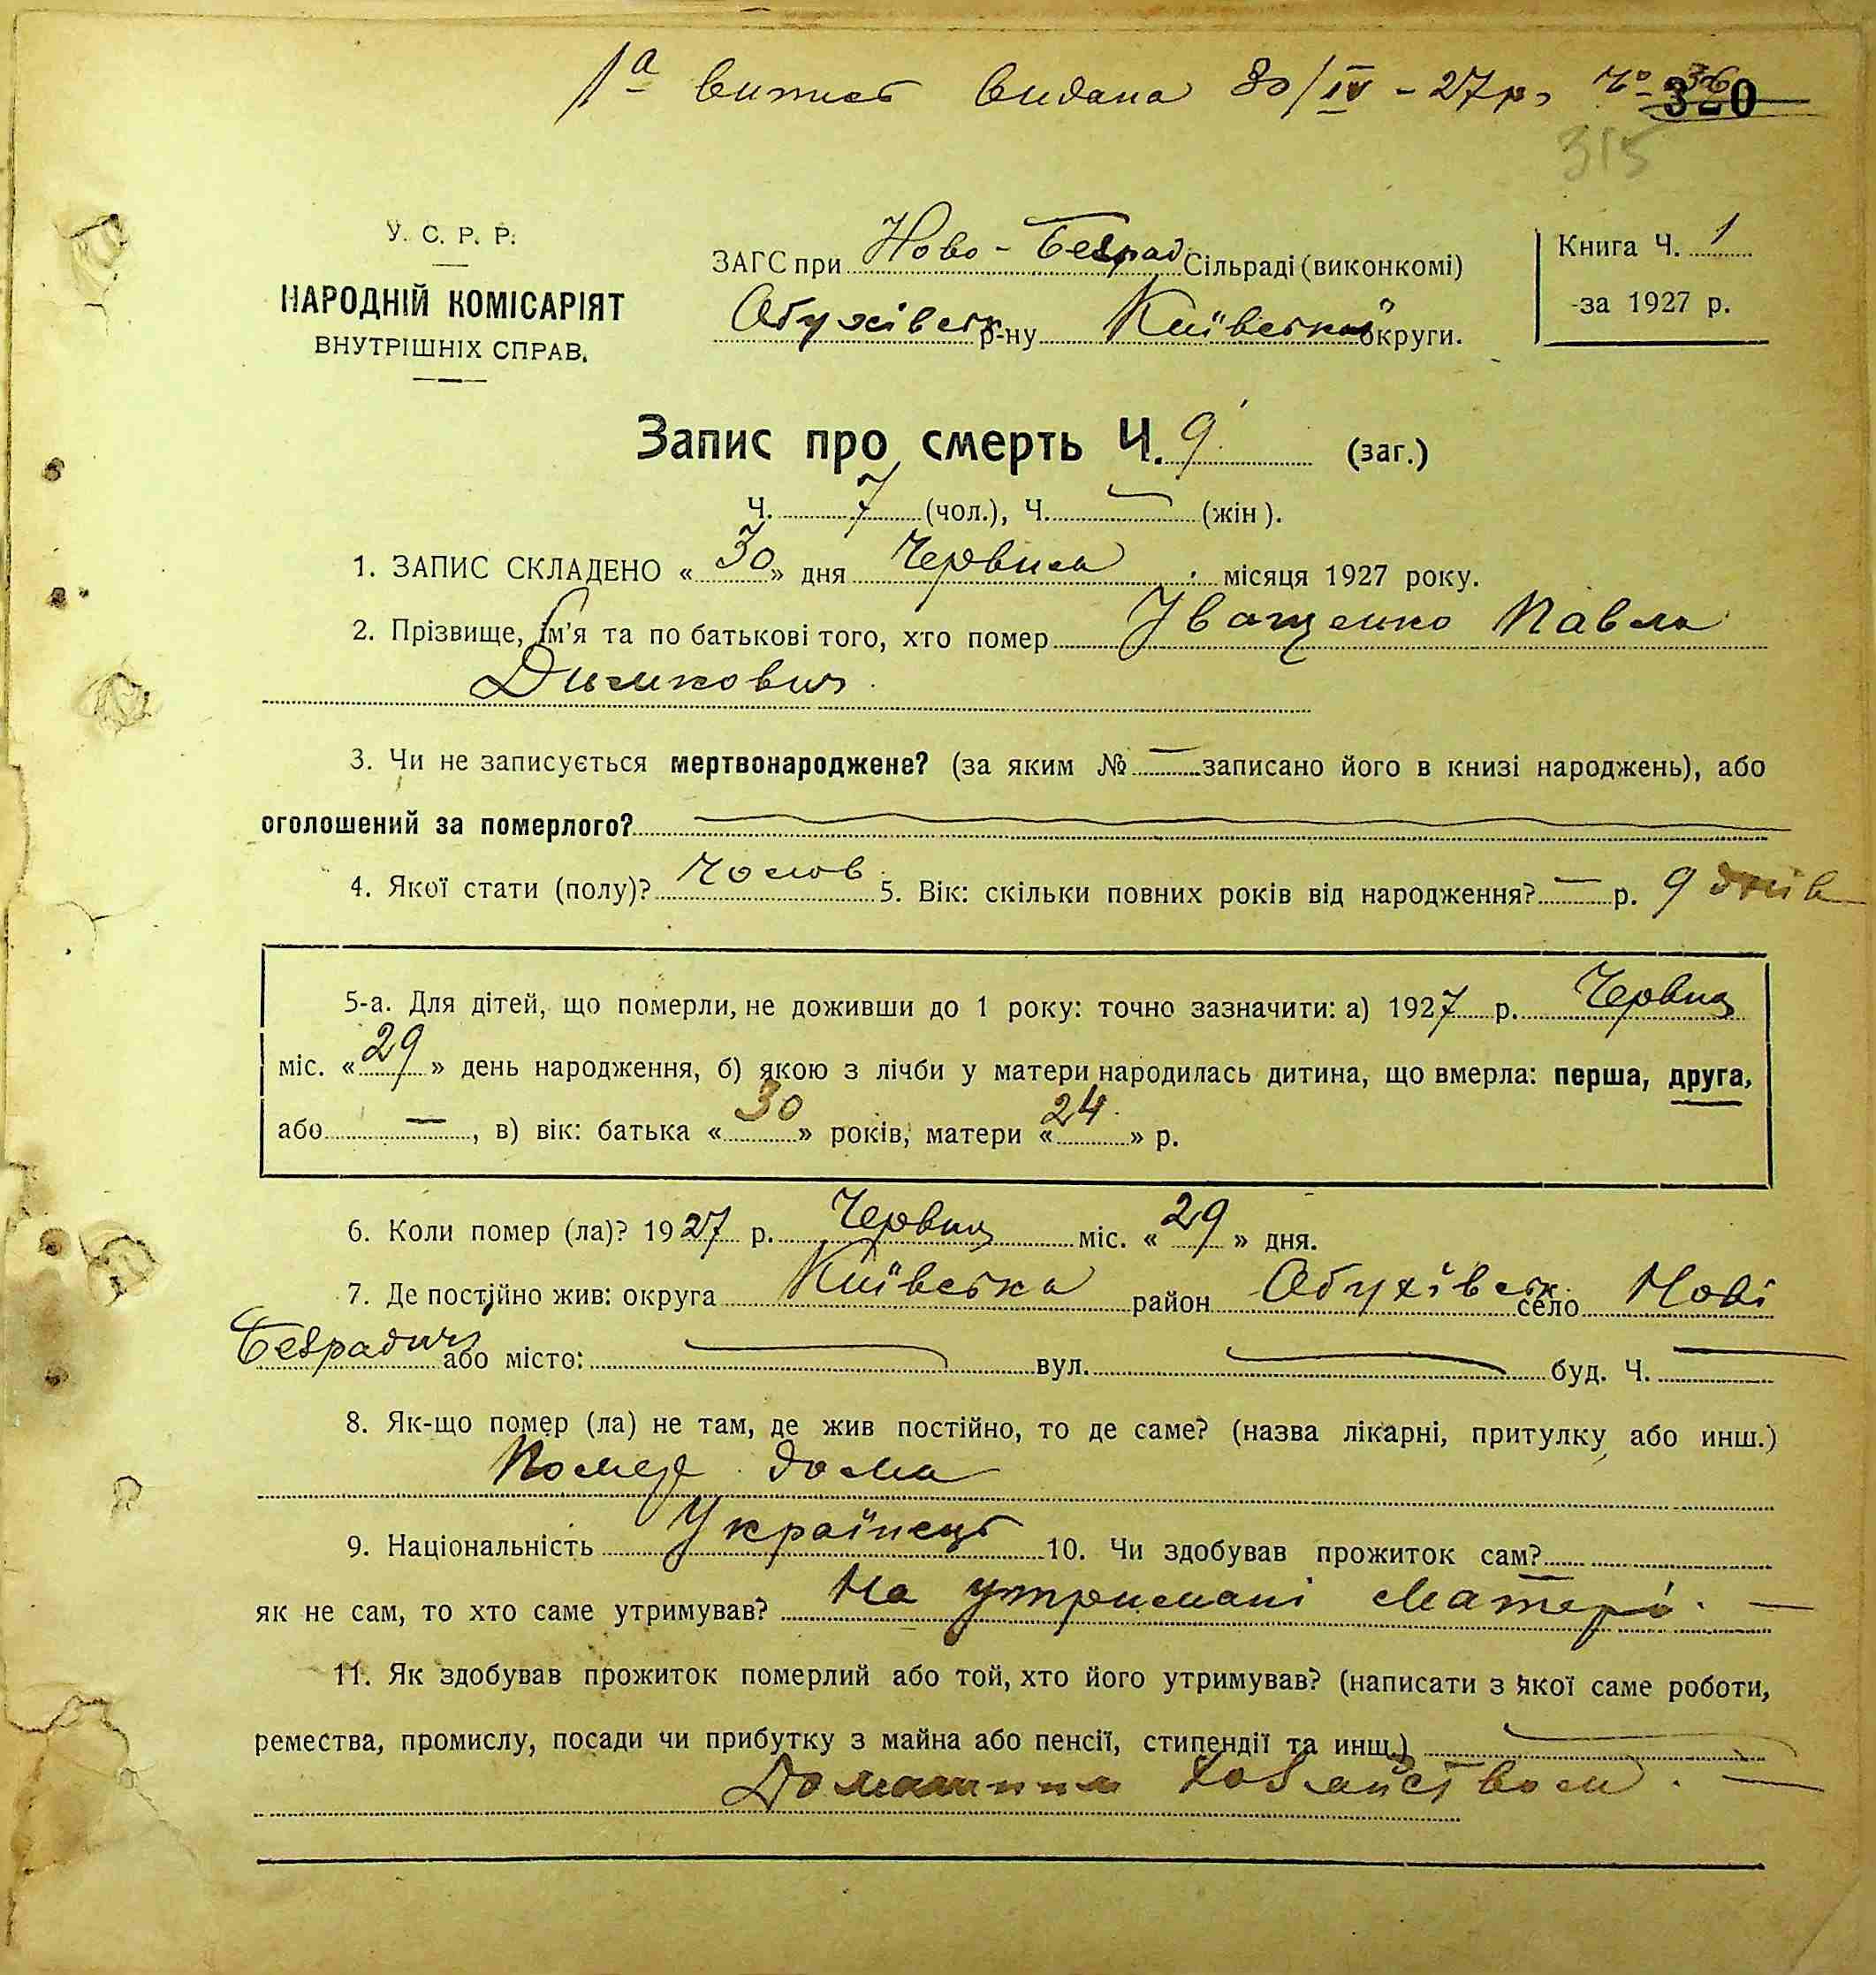 1а витись видана 30/IV - 27 р. Ч° 36
320
315
У. С. Р. Р.
НАРОДНІЙ КОМІСАРІЯТ
ВНУТРІШНІХ СПРАВ.
ЗАГС при Ново-Безрад Сільраді (виконкомі)
Обухівськ р-ну Київської округи.
Книга Ч. 1
за 1927 р.
Запис про смерть Ч. 9 (заг.)
Ч. 7 (чол.), Ч. — (жін).
1. ЗАПИС СКЛАДЕНО «30» дня Червня місяця 1927 року.
2. Прізвище, ім'я та по батькові того, хто помер Іващенко Павло
Димкович
3. Чи не записується мертвонароджене? (за яким № — записано його в книзі народжень), або
оголошений за померлого? —
4. Якої стати (полу)? Чолов 5. Вік: скільки повних років від народження? — р. 9 днів
5-а. Для дітей, що померли, не доживши до 1 року: точно зазначити: а) 1927 р. Червня
міс. «29» день народження, б) якою з лічби у матери народилась дитина, що вмерла: перша, друга,
або —, в) вік: батька «30» років, матери «24» р.
6. Коли помер (ла)? 1927 р. Червня міс. «29» дня.
7. Де постійно жив: округа Київська район Обухівськ. село Нові
Безрадичі або місто: — вул. — буд. Ч. —
8. Як-що помер (ла) не там, де жив постійно, то де саме? (назва лікарні, притулку або инш.)
Помер дома
9. Національність Українець 10. Чи здобував прожиток сам? —
як не сам, то хто саме утримував? На утримані матері. —
11. Як здобував прожиток померлий або той, хто його утримував? (написати з якої саме роботи,
ремества, промислу, посади чи прибутку з майна або пенсії, стипендії та инш.)
Домашним хозайством. —